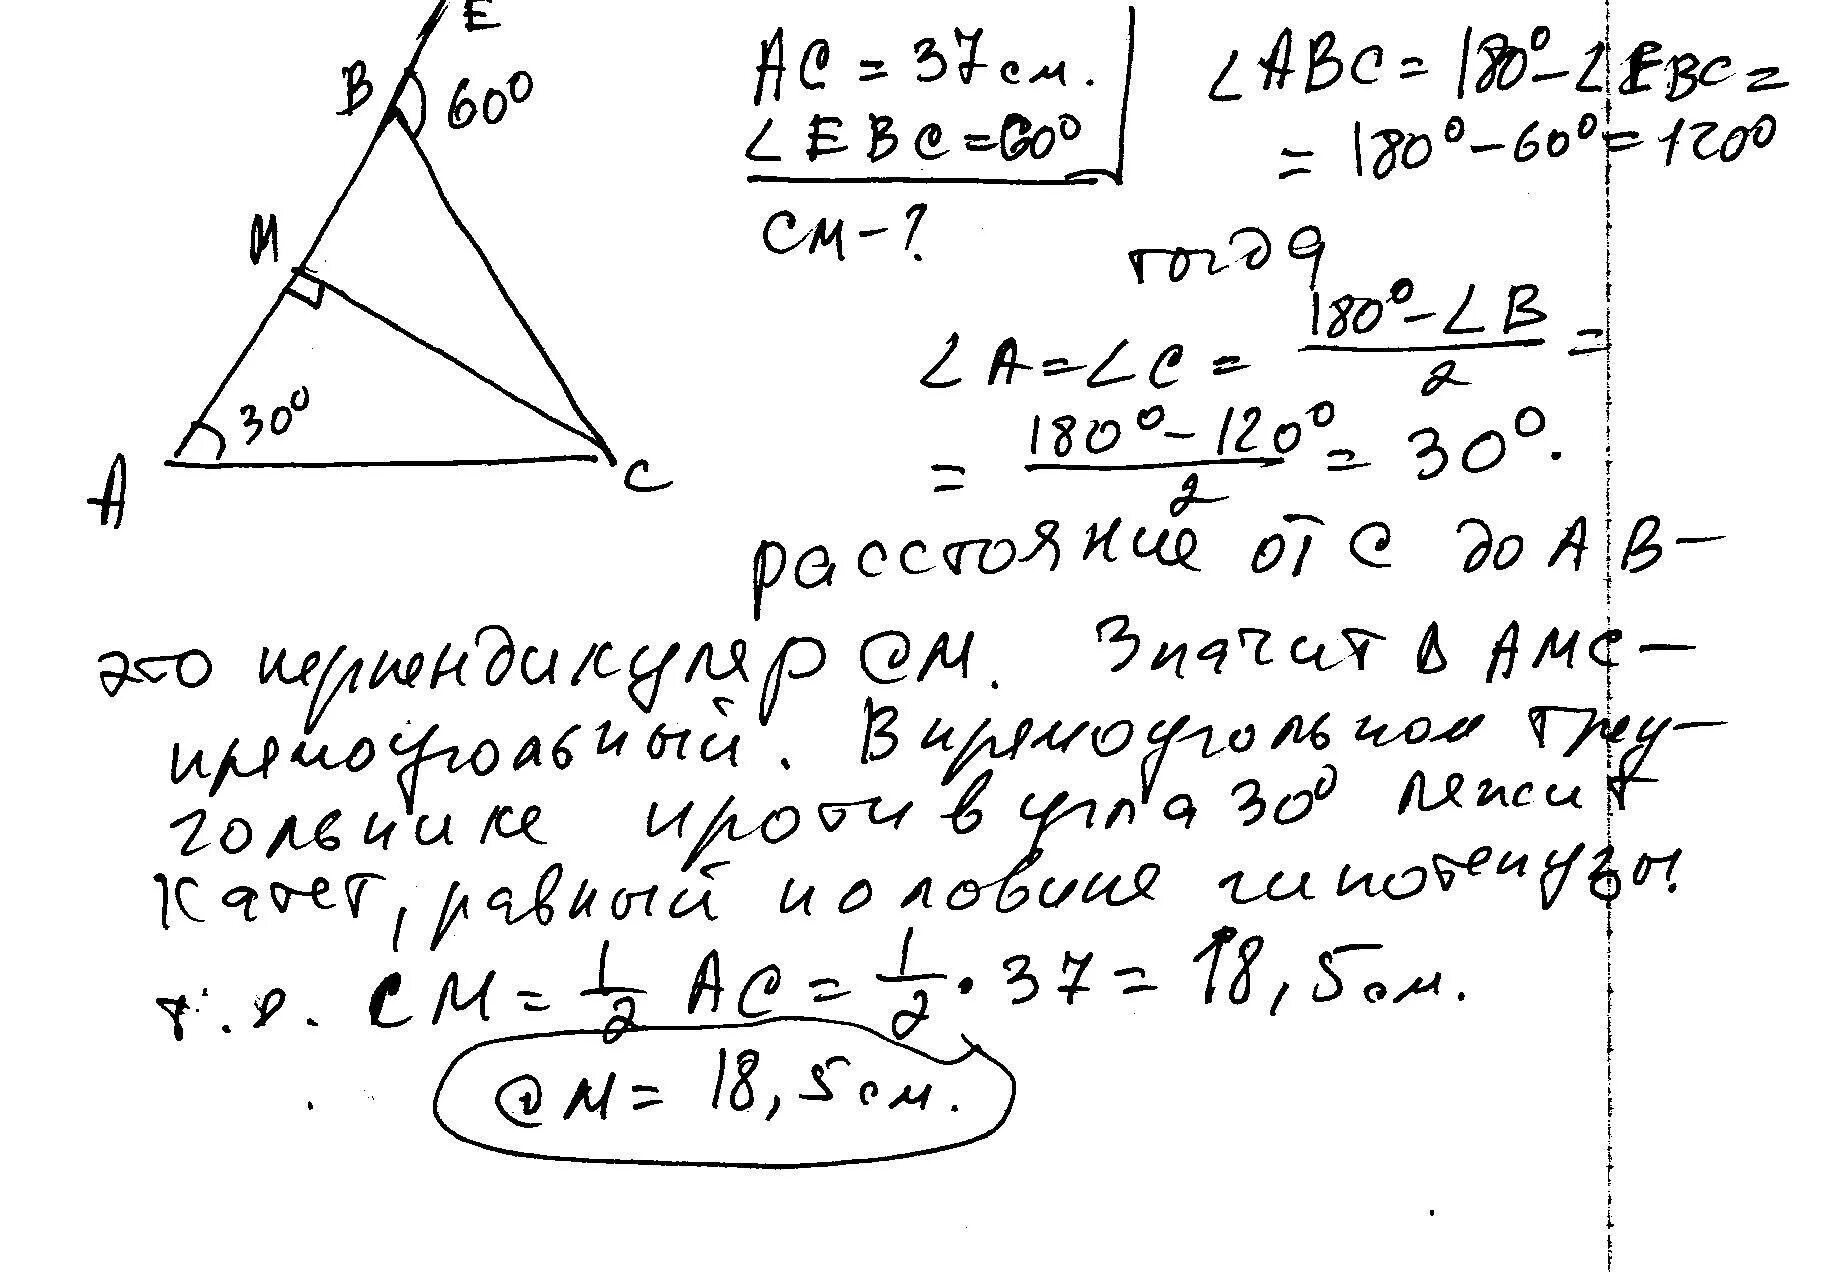 E
B
60°
M
30°
A
C
AC = 37 см.
∠EBC = 60°
CM - ?
∠ABC = 180° - ∠EBC =
= 180° - 60° = 120°
тогда
∠A = ∠C = (180° - ∠B)/2 =
= (180° - 120°)/2 = 30°.
расстояние от C до AB -
это перпендикуляр CM. Значит Δ AMC -
прямоугольный. В прямоугольном треу-
гольнике против угла 30° лежит
катет, равный половине гипотенузы.
т.е. CM = 1/2 AC = 1/2 · 37 = 18,5 см.
CM = 18,5 см.